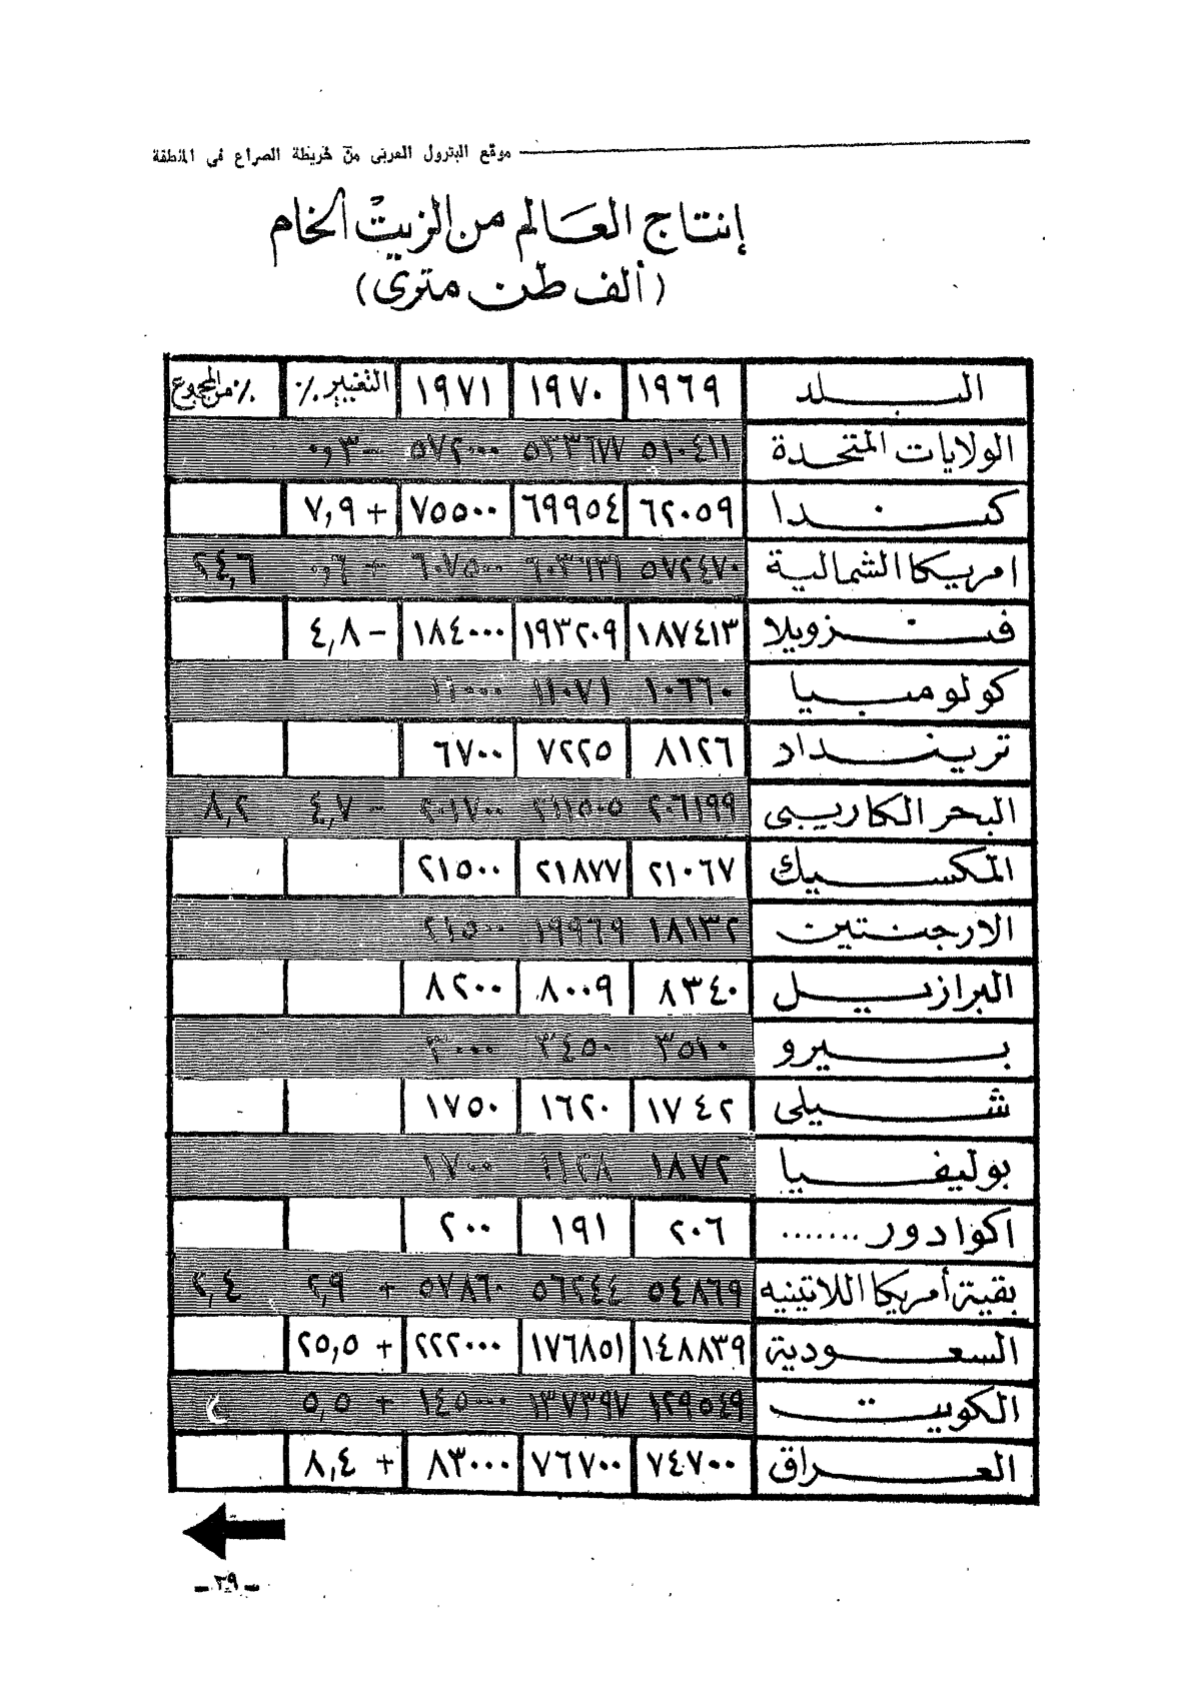 موقع البترول العربى من خريطة الصراع فى المنطقة
إنتاج العالم من الزيت الخام
(ألف طن مترى)
البلد ١٩٦٩ ١٩٧٠ ١٩٧١ التغيير٪ ٪من المجموع
الولايات المتحدة ٥١٠٤١١ ٥٣٣٦٧٧ ٥٧٢٠٠٠ −٠,٣
كندا ٦٢٠٥٩ ٦٩٩٥٤ ٧٥٥٠٠ +٧,٩
امريكا الشمالية ٥٧٢٤٧٠ ٦٠٣٦٣١ ٦٠٧٥٠٠ +٠,٦ ٢٤,٦
فنزويلا ١٨٧٤١٣ ١٩٣٢٠٩ ١٨٤٠٠٠ −٤,٨
كولومبيا ١٠٦٦٠ ١١٠٧١ ١١٠٠٠
ترينداد ٨١٢٦ ٧٢٢٥ ٦٧٠٠
البحر الكاريبى ٢٠٦١٩٩ ٢١١٥٠٥ ٢٠١٧٠٠ −٤,٧ ٨,٢
المكسيك ٢١٠٦٧ ٢١٨٧٧ ٢١٥٠٠
الارجنتين ١٨١٣٢ ١٩٩٦٩ ٢١٥٠٠
البرازيل ٨٣٤٠ ٨٠٠٩ ٨٢٠٠
بيرو ٣٥١٠ ٣٤٥٠ ٣٠٠٠
شيلى ١٧٤٢ ١٦٢٠ ١٧٥٠
بوليفيا ١٨٧٢ ١١٢٨ ١٧٠٠
اكوادور....... ٢٠٦ ١٩١ ٢٠٠
بقية أمريكا اللاتينيه ٥٤٨٦٩ ٥٦٢٤٤ ٥٧٨٦٠ +٢,٩ ٢,٤
السعودية ١٤٨٨٣٩ ١٧٦٨٥١ ٢٢٢٠٠٠ +٢٥,٥
الكويت ١٢٩٥٤٩ ١٣٧٣٩٧ ١٤٥٠٠٠ +٥,٥
العراق ٧٤٧٠٠ ٧٦٧٠٠ ٨٣٠٠٠ +٨,٤
– ٣٩ –